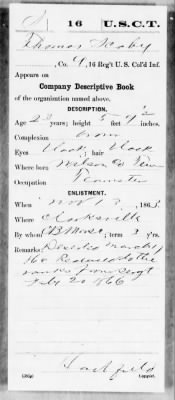 S 16 U.S.C.T.
Thomas
, Co. G, 16 Reg't U.S. Col'd Inf.
Appears on
Company Descriptive Book
of the organization named above.
DESCRIPTION.
Age 22 years; height 5 feet 9 ½ inches.
Complexion brown
Eyes black; hair black
Where born Wilson Co Tenn
Occupation Teamster
ENLISTMENT.
When Nov 1 , 1863.
Where Clarksville
By whom ; term 3 y'rs.
Remarks: March
Reduced to the
ranks from Sergt
Feby 20 1866
Copyist.